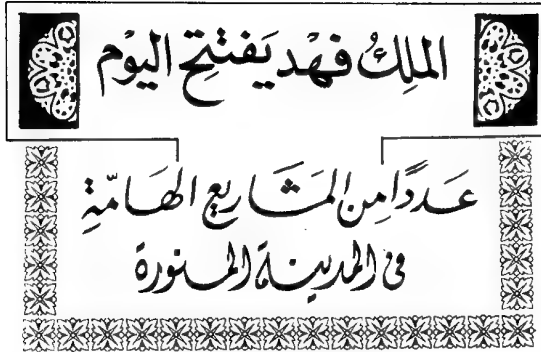 الملِكُ فهْد يَفتتِح اليوْم
عَددًا مِن المَشَاريع الهَامّةِ
فى المدينة المنورة